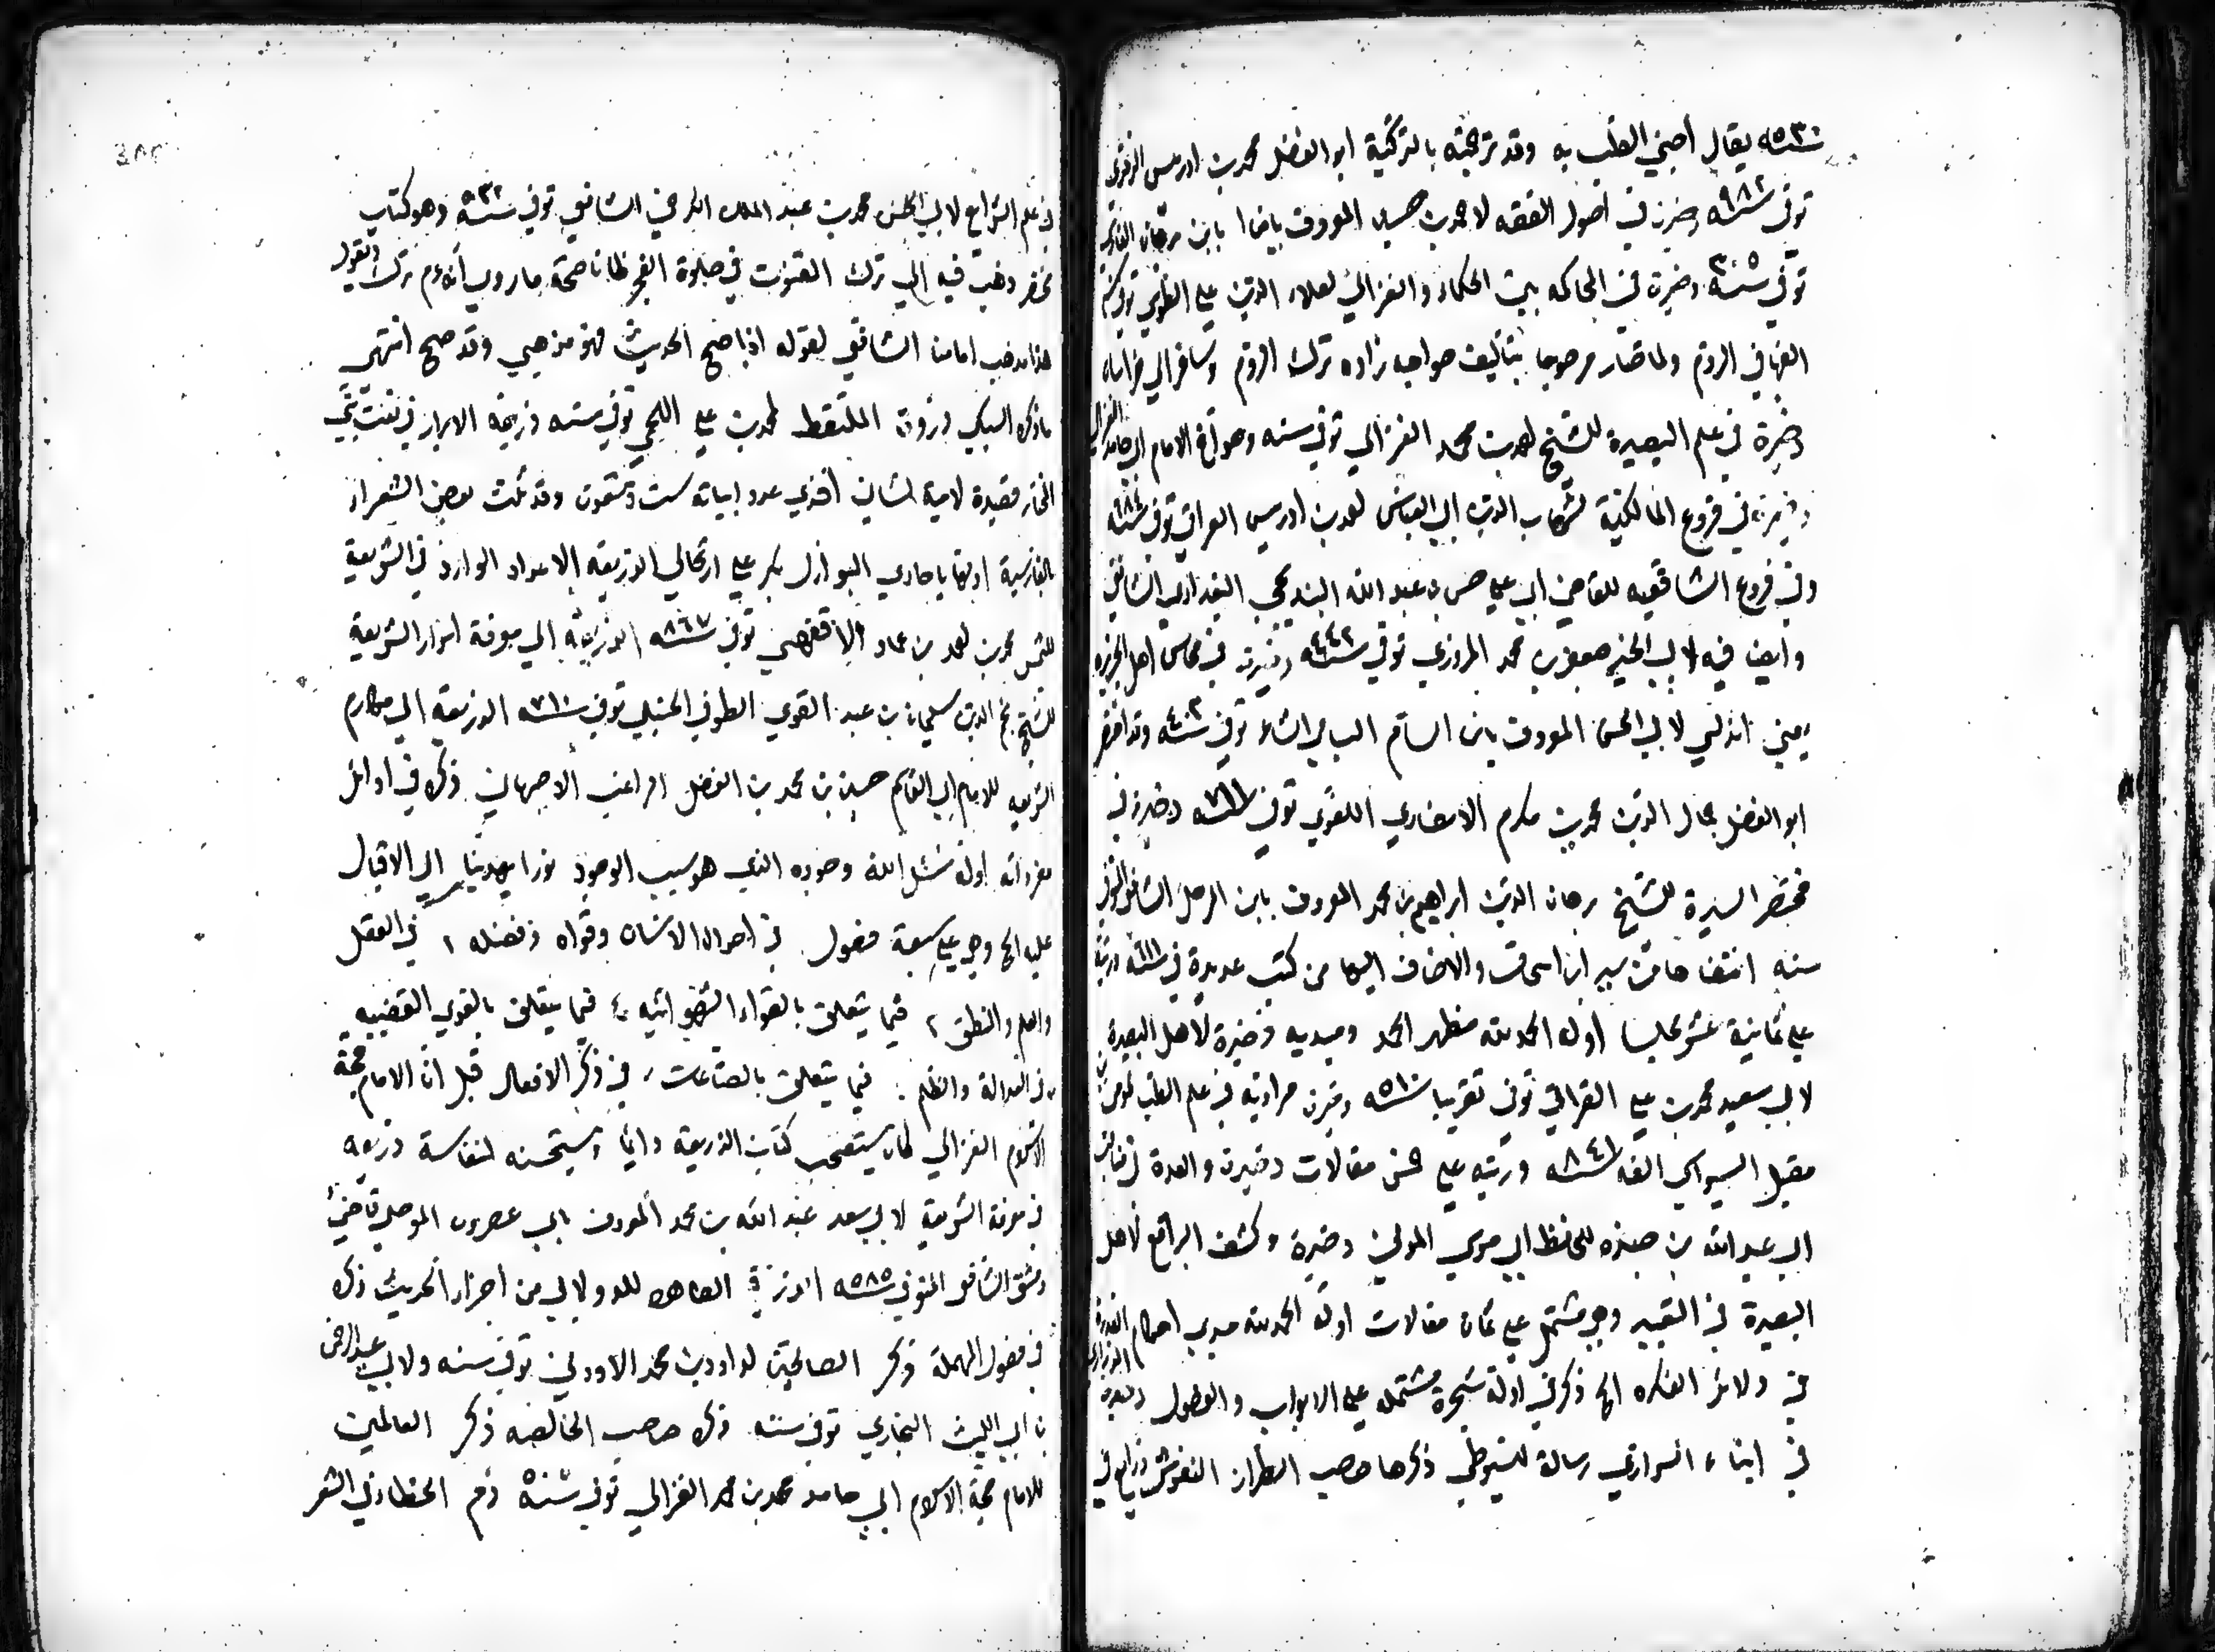 سنة ٥٣٠ يقال أحيى الطب به وقد ترجمته بالتركية ابو الفضل محمد بن ادريس الدفتري
توفي سنة ٩٨٢ ذخيرة في أصول الفقه لاحمد بن حسين المعروف بابن برهان الفارسي
توفي سنة ٣٠٥ ذخيرة في المحاكمه بين الحكماء والغزالي لعلاء الدين علي الطوسي
الفها في الروم ولما صار مرجوحا بتأليف خواجه زاده ترك الروم وسافر الي
ذخيرة في علم البصيرة للشيخ احمد بن محمد الغزالي توفي سنه وهو أخ الامام ابي حامد الغزالي
ذخيرة في فروع المالكية لشهاب الدين ابي العباس احمد بن ادريس القرافي توفي سنة ٦٨٤
وفي فروع الشافعيه للقاضي ابي علي حسن بن عبد الله البندنيجي البغدادي الشافعي
وايضا فيه لابي الخير جعفر بن محمد المروزي توفي سنة ٤٤٢ ذخيرة في محاسن اهل الجزيره
يعني اندلس لابي الحسن المعروف بابن السام الشاعر توفي سنة ٤٠٣ وقد اختصر
ابو الفضل جمال الدين محمد بن مكرم الانصاري اللغوي توفي سنة ٧١١ ذخيرة في
مختصر السيرة للشيخ برهان الدين ابراهيم بن محمد المعروف بابن المرحل الشافعي المتوفي
سنه انتقاها من سير ابن اسحاق والاضاف اليها من كتب عديدة في سنة ٦١١ ورتبه
علي ثمانية عشر مجلسا أوله الحمد لله مظهر الحمد ومبديه ذخيرة لاهل البصيرة
لابي سعيد محمد بن علي العراقي توفي تقريبا سنة ٥١٠ ذخيرة مرادية في علم الطب لمؤمن بن
مقبل السيوابي الفه سنة ٨٤١ ورتبه علي خمس مقالات ذخيرة والعدة
ابي عبد الله بن منده للحافظ ابي موسي المديني ذخيرة وكشف البراقع لاهل
البصيرة في التعبير وهي مشتمل علي ثمان مقالات اوله الحمد لله مبدي احكام القدرة
في دلائل الفكره الخ ذكر في اوله شجرة مشتمله علي الابواب والفصول
في ابناء السراري رسالة للسيوطي ذكرها صاحب الطراز المنقوش ذرايع في
في علم الشرايع لابي الحسن محمد بن عبد الملك الكرخي الشافعي توفي سنة ٥٣٢ وهو كتاب
مختصر ذهب فيه الي ترك القنوت في صلوة الفجر ظانا صحة ما روي أنه عم ترك ويقول
هذا مذهب امامنا الشافعي لقوله اذا صح الحديث فهو مذهبي وقد صح انتهي
ما ذكره السبكي ذروة الملتقط لمحمد بن علي اللخمي توفي سنه ذريعة الابرار في نعت نبي
المختار قصيدة لامية لشاني أفندي عدد ابياته ست وتسعون وقد ثلث بعض الشعراء
بالفارسية اولها يا حادي البوازل بكر علي ارتحالي الذريعه الاعداد الوارد في الشريعة
للشمس محمد بن احمد بن عماد الاقفهسي توفي سنة ٨٦٧ الذريعة الي معرفة اسرار الشريعة
للشيخ نجم الدين سليمان بن عبد القوي الطوفي الحنبلي توفي سنة ٧١٠ الذريعة الي مكارم
الشريعه للامام ابي القاسم حسين بن محمد بن الفضل الراغب الاصبهاني ذكره في اوائل
مفرداته اوله نسئل الله وجوده الذي هو سبب الوجود نورا يهدينا الي الاقبال
عليه الخ وهي علي سبعة فصول في احوال الانسان وقواه وفضله ١ في العقل
والعلم والنطق ٢ فيما يتعلق بالقواء الشهوانيه ٤ فيما يتعلق بالقوي الغضبيه
في العدالة والظلم فيما يتعلق بالصناعات في ذكر الافعال قيل ان الامام حجة
الاسلام الغزالي كان يستصحب كتاب الذريعه دائما ويستحسنه لنفاسة ذريعه
في معرفة الشريعة لابي سعد عبد الله بن محمد المعروف بابي عصرون الموصلي قاضي
دمشق الشافعي المتوفي سنة ٥٨٥ الذرية الطاهره للدولابي من اجزاء الحديث ذكره
في فصول المهملة ذكر الصالحين لداود بن محمد الاودني توفي سنه ولابي عبد الرحمن
بن ابي الليث البخاري توفي سنه ذكره صاحب الخالصه ذكر العالمين
للامام حجة الاسلام ابي حامد محمد بن محمد الغزالي توفي سنة ٥٠٥ ذم الخطا في الشعر